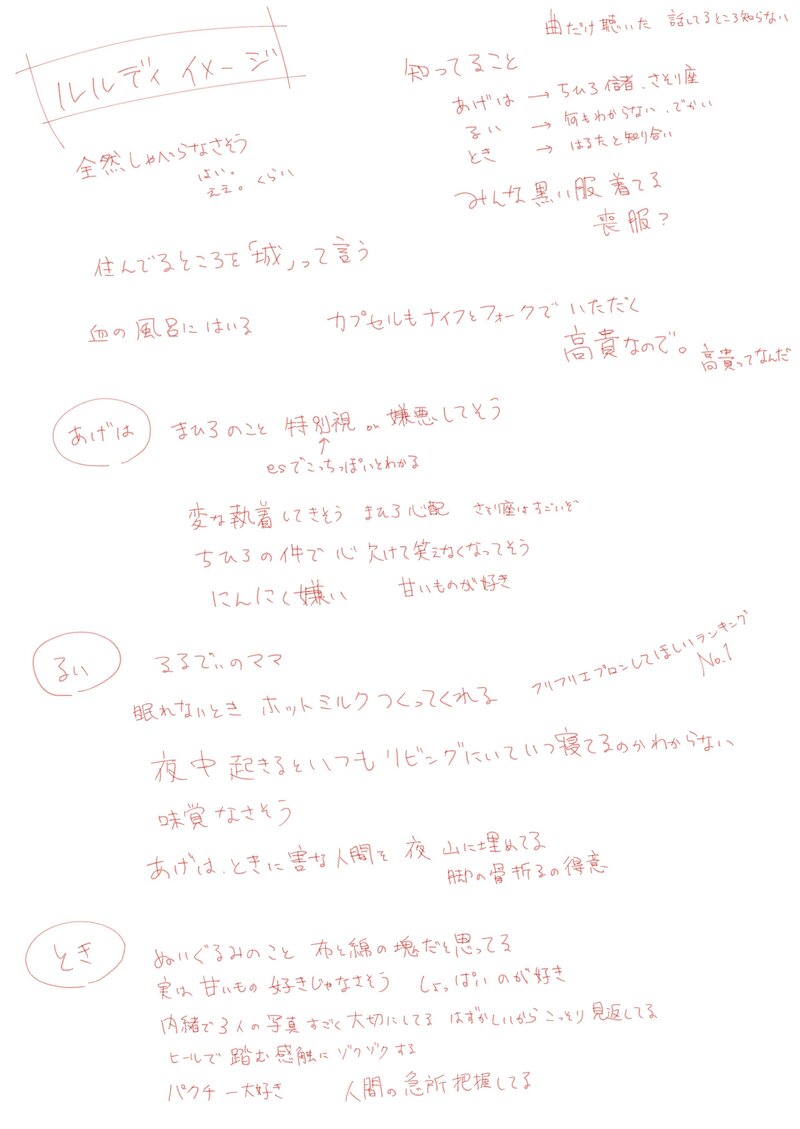 曲だけ聴いた 話してるところ知らない
ルルディ イメージ
知ってること
あげは → ちひろ信者、さそり座
るい → 何もわからない、でかい
とき → はるたと知り合い
みんな黒い服着てる
喪服?
全然しゃべらなさそう
はい。
ええ。くらい
住んでるところを「城」って言う
血の風呂にはいる
カプセルもナイフとフォークでいただく
高貴なので。
高貴ってなんだ
あげは
まひろのこと 特別視 or 嫌悪してそう
↑
esでこっちっぽいとわかる
変な執着してきそう まひろ心配 さそり座はすごいぞ
ちひろの件で心欠けて笑えなくなってそう
にんにく嫌い 甘いものが好き
るい
るるでぃのママ
フリフリエプロンしてほしいランキング
No.1
眠れないとき ホットミルクつくってくれる
夜中起きるといつもリビングにいていつ寝てるのかわからない
味覚なさそう
あげは、ときに害な人間を 夜 山に埋めてる
脚の骨折るの得意
とき
ぬいぐるみのこと 布と綿の塊だと思ってる
実は甘いもの好きじゃなさそう しょっぱいのが好き
内緒で3人の写真すごく大切にしてる はずかしいからこっそり見返してる
ヒールで踏む感触にゾクゾクする
パクチー大好き 人間の急所把握してる